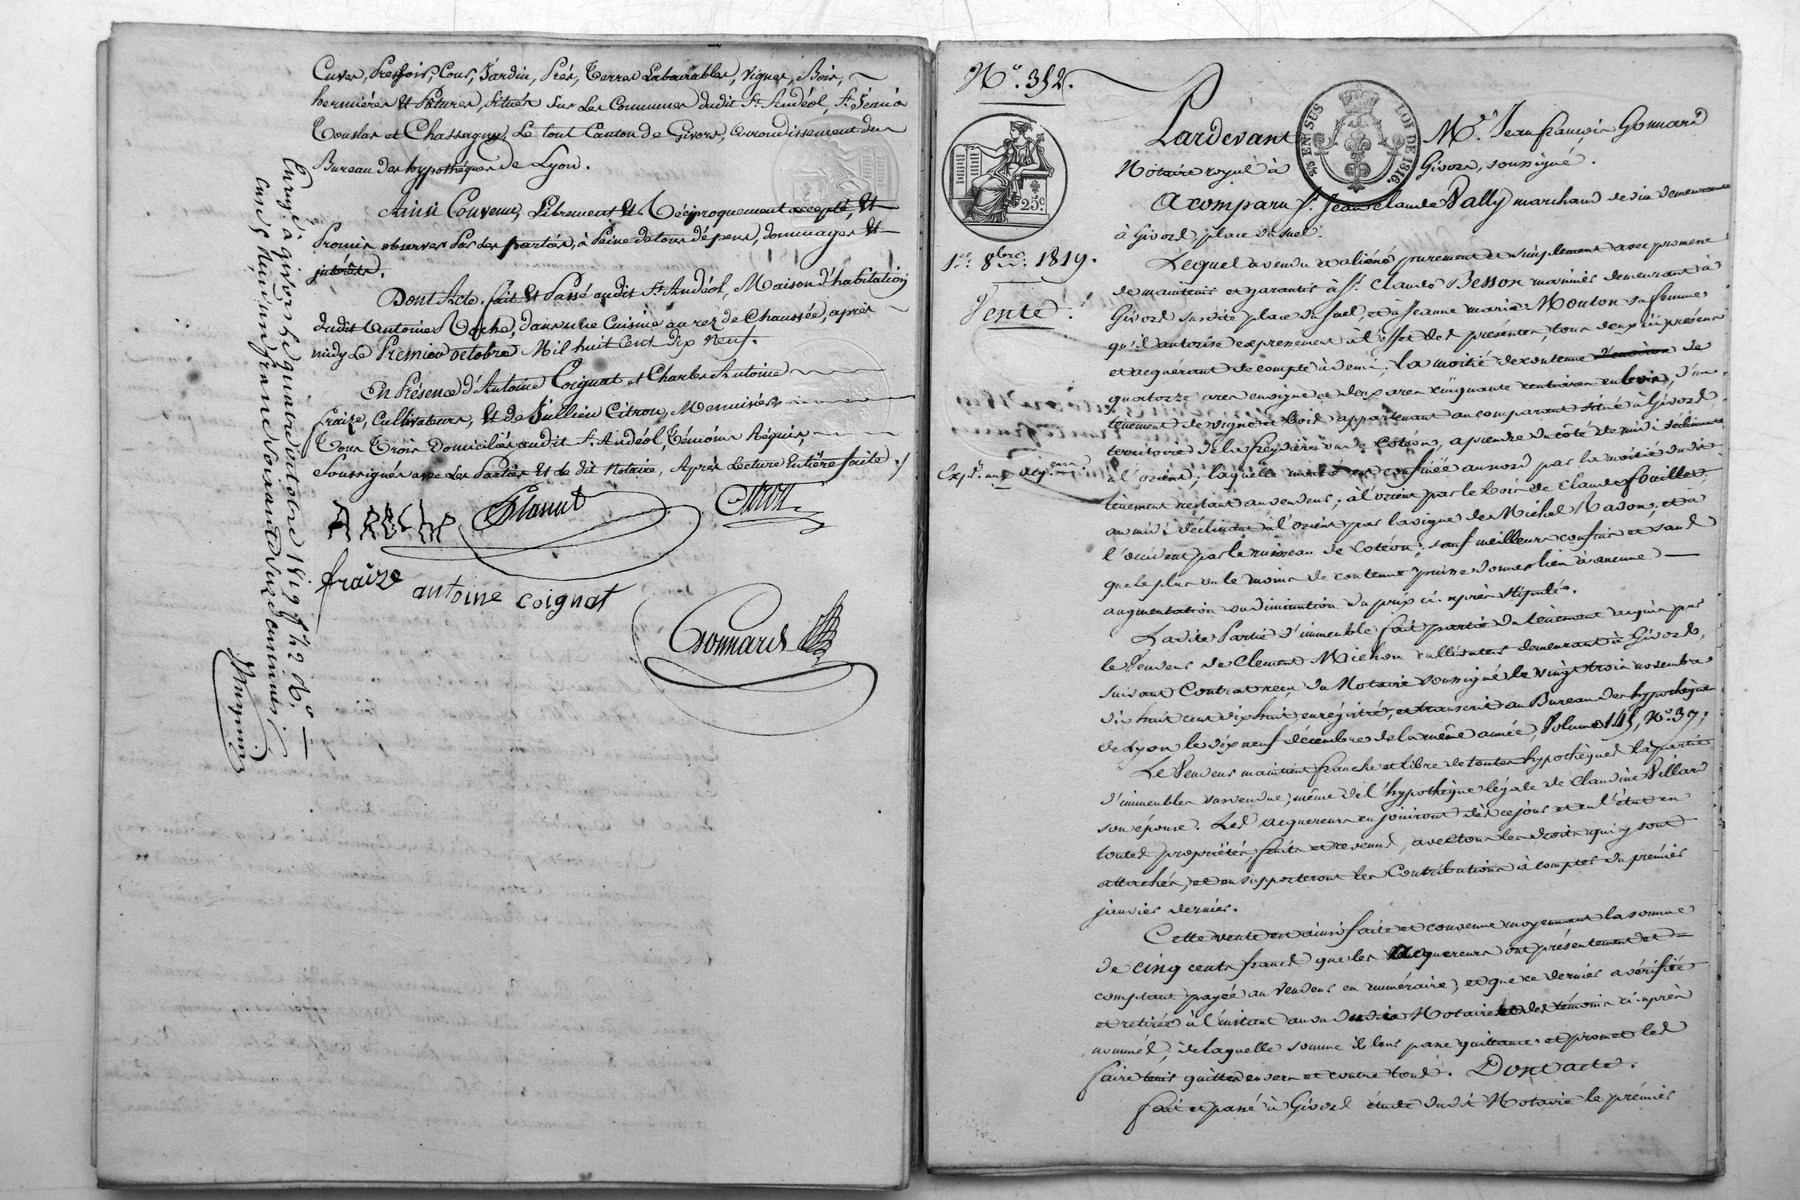 Cuves, Pressoir, Cour, Jardin, Prés, Terres Labourables, Vignes, Bois,
hermières et Patures, situés sur les Communes dudit St. Andéol, St. Jean à
Touslas et Chassagny, Le tout Canton de Givors, arrondissement du
Bureau des hypothéques de Lyon.
Ainsi Convenu, Librement et Réciproquement accepté, et
Promis observer Par Les parties, à Peine de tous dépens, dommages et
intérêts.
Dont Acte. fait et Passé audit St. Andéol, Maison d'habitation
dudit Antoine Roche, dans une Cuisine au rez de Chaussée, après
midy Le Premier octobre Mil huit Cent Dix Neuf.
En Présence d'Antoine Coignat et Charles Antoine
fraize, Cultivateurs, et de Jullien Citron, Menuisier
Tous Trois Domiciliés audit St. Andéol, Témoins Réquis,
Soussignés avec Les Parties et le dit Notaire, Après Lecture Entière faite ./
AROCHE
Citron
fraize antoine coignat
Gonnard
Enregé. à givors le quatre octobre 1819 fo. 42
cinq
N°. 352.
Pardevant Me. Jean françois Gonnard
25 EN SUS LOI DE 1816.
Notaire royal à Givors, soussigné.
25c
A comparu Sr. Jean Claude Pally marchand de vin demeurant
à Givors place du suel.
1er. 8bre. 1819.
Lequel a vendu et aliéné purement et simplement avec promesse
de maintenir et garantir à Sr. Claude Besson marinier demeurant à
Vente.
Givors susdite place du suel, et à Jeanne marie Mouton sa femme
qu'il autorise expressément à l'effet des présentes, tous deux ici présens
et acquérant de compte à demi, la moitié de contenue d'environ de
quatorze ares en vigne et deux ares cinquante centiares en bois, d'un
tènement de vigne et bois appartenant au comparant situé à Givors
territoire de la freydière ou de Cotéon, à prendre du côté de midi déclinant
à l'orient; laquelle moitié est confinée au nord par la moitié dudit
tènement restant au vendeur; à l'orient par le bois de Claude fouillet,
au midi déclinant à l'orient par la vigne de Michel Radon; et à
l'occident par le ruisseau de Cotéon; sauf meilleurs confins et sans
que le plus ou le moins de contenue puisse donner lien à aucune
augmentation ou diminution du prix ci-après stipulé.
Ladite Partie d'immeuble fait partie du tènement acquis par
le Vendeur de Clement Michon cultivateur demeurant à Givors,
suivant Contrat reçu du Notaire soussigné le vingt trois novembre
dix huit cent dix huit, enregistré, et transcrit au Bureau des hypothèques
de Lyon le dix neuf décembre de la même année, Volume 145, No. 37;
Le Vendeur maintient franche et libre de toutes hypothèques la partie
d'immeubles susvendue, même de l'hypothèque légale de Claudine Villard
son épouse. Les acquereurs en jouiront dès ce jour et en l'état en
toutes propriétés, fruits et revenus, avec tous les droits qui y sont
attachés, et en supporteront les Contributions à compter du premier
janvier dernier.
Cette vente est ainsi faite et convenue moyennant la somme
de cinq cents francs que les acquereurs ont présentement et
comptant payée au Vendeur en numéraire, et que ce dernier a vérifiée
et retirée à l'instant au vu dudit Notaire et des témoins ci-après
nommés, de laquelle somme il leur passe quittance et promet les
faire tenir quittes envers et contre tous. Dont acte.
fait et passé à Givors étude dudit Notaire le premier